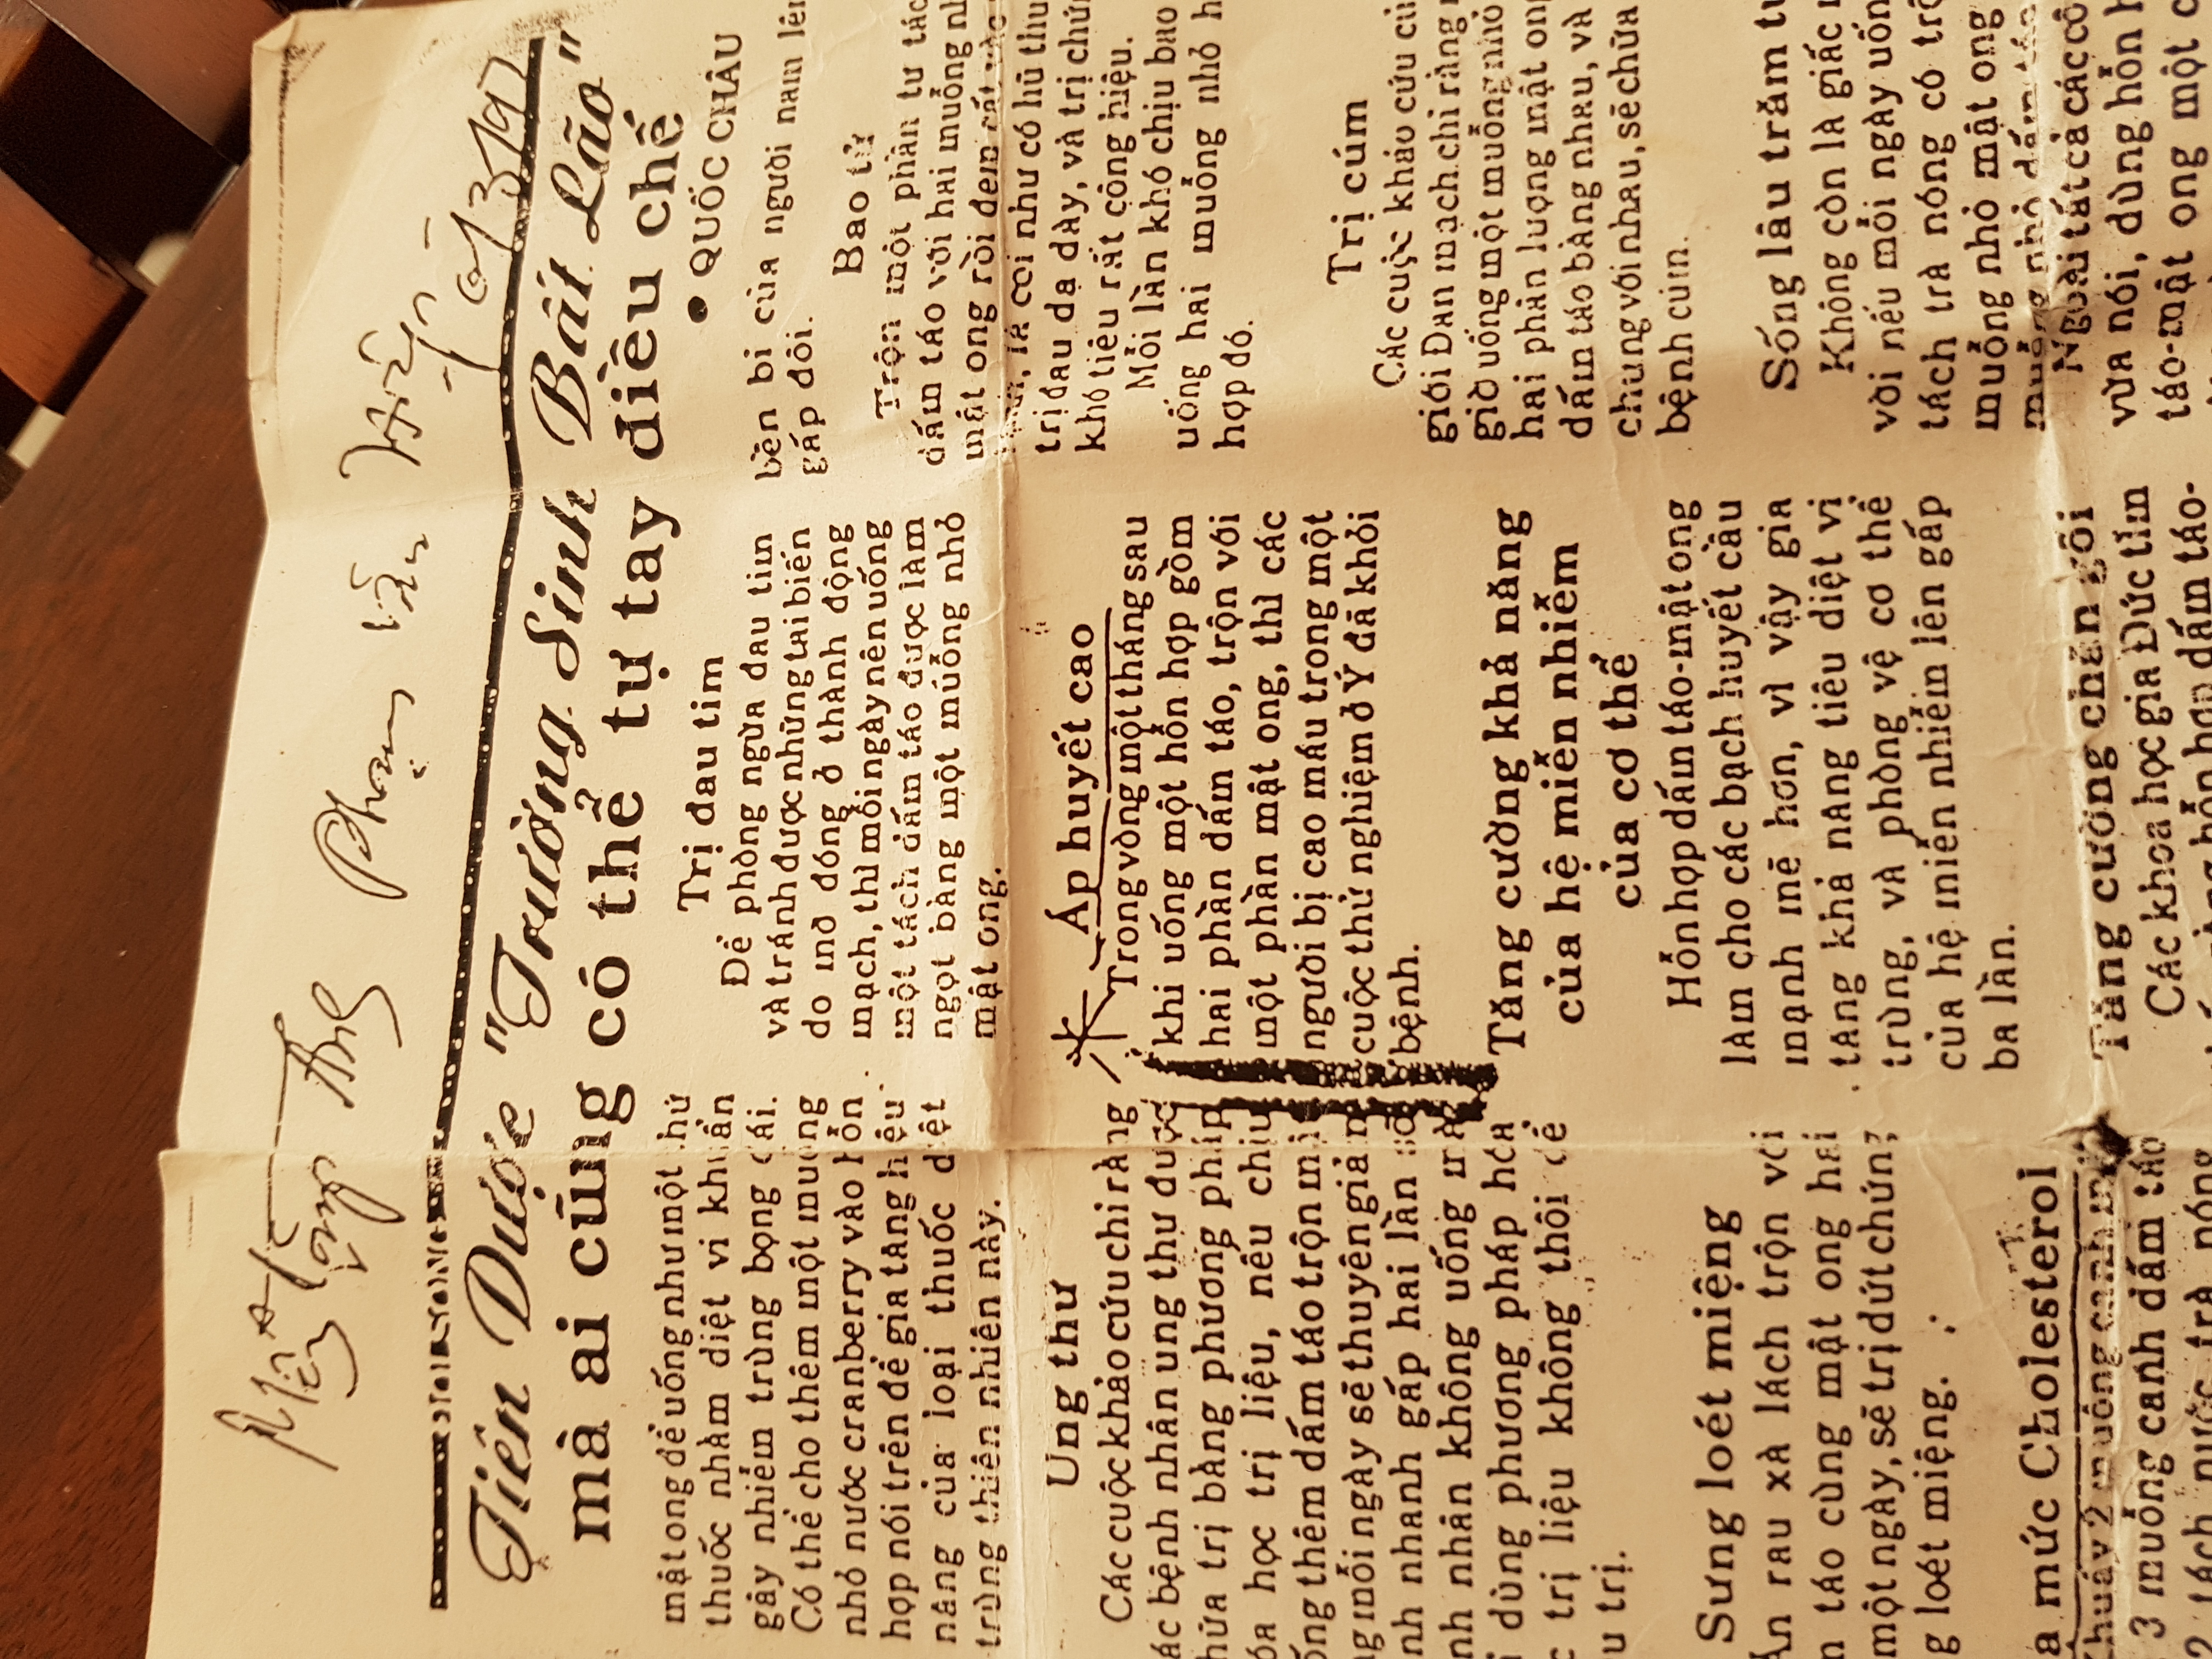 Phạm văn
Tiên Dược "Trường Sinh Bất Lão"
mà ai cũng có thể tự tay điều chế
● QUỐC CHÂU
mật ong để uống như một thứ
thuốc nhằm diệt vi khuẩn
gây nhiễm trùng bọng đái.
Có thể cho thêm một muỗng
nhỏ nước cranberry vào hỗn
hợp nói trên để gia tăng hiệu
năng của loại thuốc diệt
trùng thiên nhiên này.
Ung thư
Các cuộc khảo cứu chỉ rằng
các bệnh nhân ung thư được
chữa trị bằng phương pháp
hóa học trị liệu, nếu chịu
uống thêm dấm táo trộn mật
ong mỗi ngày sẽ thuyên giảm
nhanh gấp hai lần
nhân không uống mà
dùng phương pháp hóa
trị liệu không thôi để
trị.
Sưng loét miệng
Ăn rau xà lách trộn với
táo cùng mật ong hai
một ngày, sẽ trị dứt chứng
loét miệng.
mức Cholesterol
Khuáy 2 muỗng canh
3 muỗng canh dấm táo
2 tách nước trà nóng
Trị đau tim
Để phòng ngừa đau tim
và tránh được những tai biến
do mỡ đóng ở thành động
mạch, thì mỗi ngày nên uống
một tách dấm táo được làm
ngọt bằng một muỗng nhỏ
mật ong.
Áp huyết cao
Trong vòng một tháng sau
khi uống một hỗn hợp gồm
hai phần dấm táo, trộn với
một phần mật ong, thì các
người bị cao máu trong một
cuộc thử nghiệm ở Ý đã khỏi
bệnh.
Tăng cường khả năng
của hệ miễn nhiễm
của cơ thể
Hỗn hợp dấm táo-mật ong
làm cho các bạch huyết cầu
mạnh mẽ hơn, vì vậy gia
tăng khả năng tiêu diệt vi
trùng, và phòng vệ cơ thể
của hệ miễn nhiễm lên gấp
ba lần.
Tăng cường chăn gối
Các khoa học gia Đức tìm
hỗn hợp dấm táo-
bền bỉ của người nam lên
gấp đôi.
Bao tử
Trộn một phần tư tách
dấm táo với hai muỗng nhỏ
mật ong rồi đem cất vào
là coi như có hũ thuốc
trị đau dạ dày, và trị chứng
khó tiêu rất công hiệu.
Mỗi lần khó chịu bao
uống hai muỗng nhỏ
hợp đó.
Trị cúm
Các cuộc khảo cứu của
giới Đan mạch chỉ rằng
giờ uống một muỗng nhỏ
hai phần lượng mật ong
dấm táo bằng nhau, và
chung với nhau, sẽ chữa
bệnh cúm.
Sống lâu trăm tuổi
Không còn là giấc
vời nếu mỗi ngày uống
tách trà nóng có trộn
muỗng nhỏ mật ong
muỗng nhỏ dấm táo
Ngoài tất cả các
vừa nói, dùng hỗn
táo-mật ong một